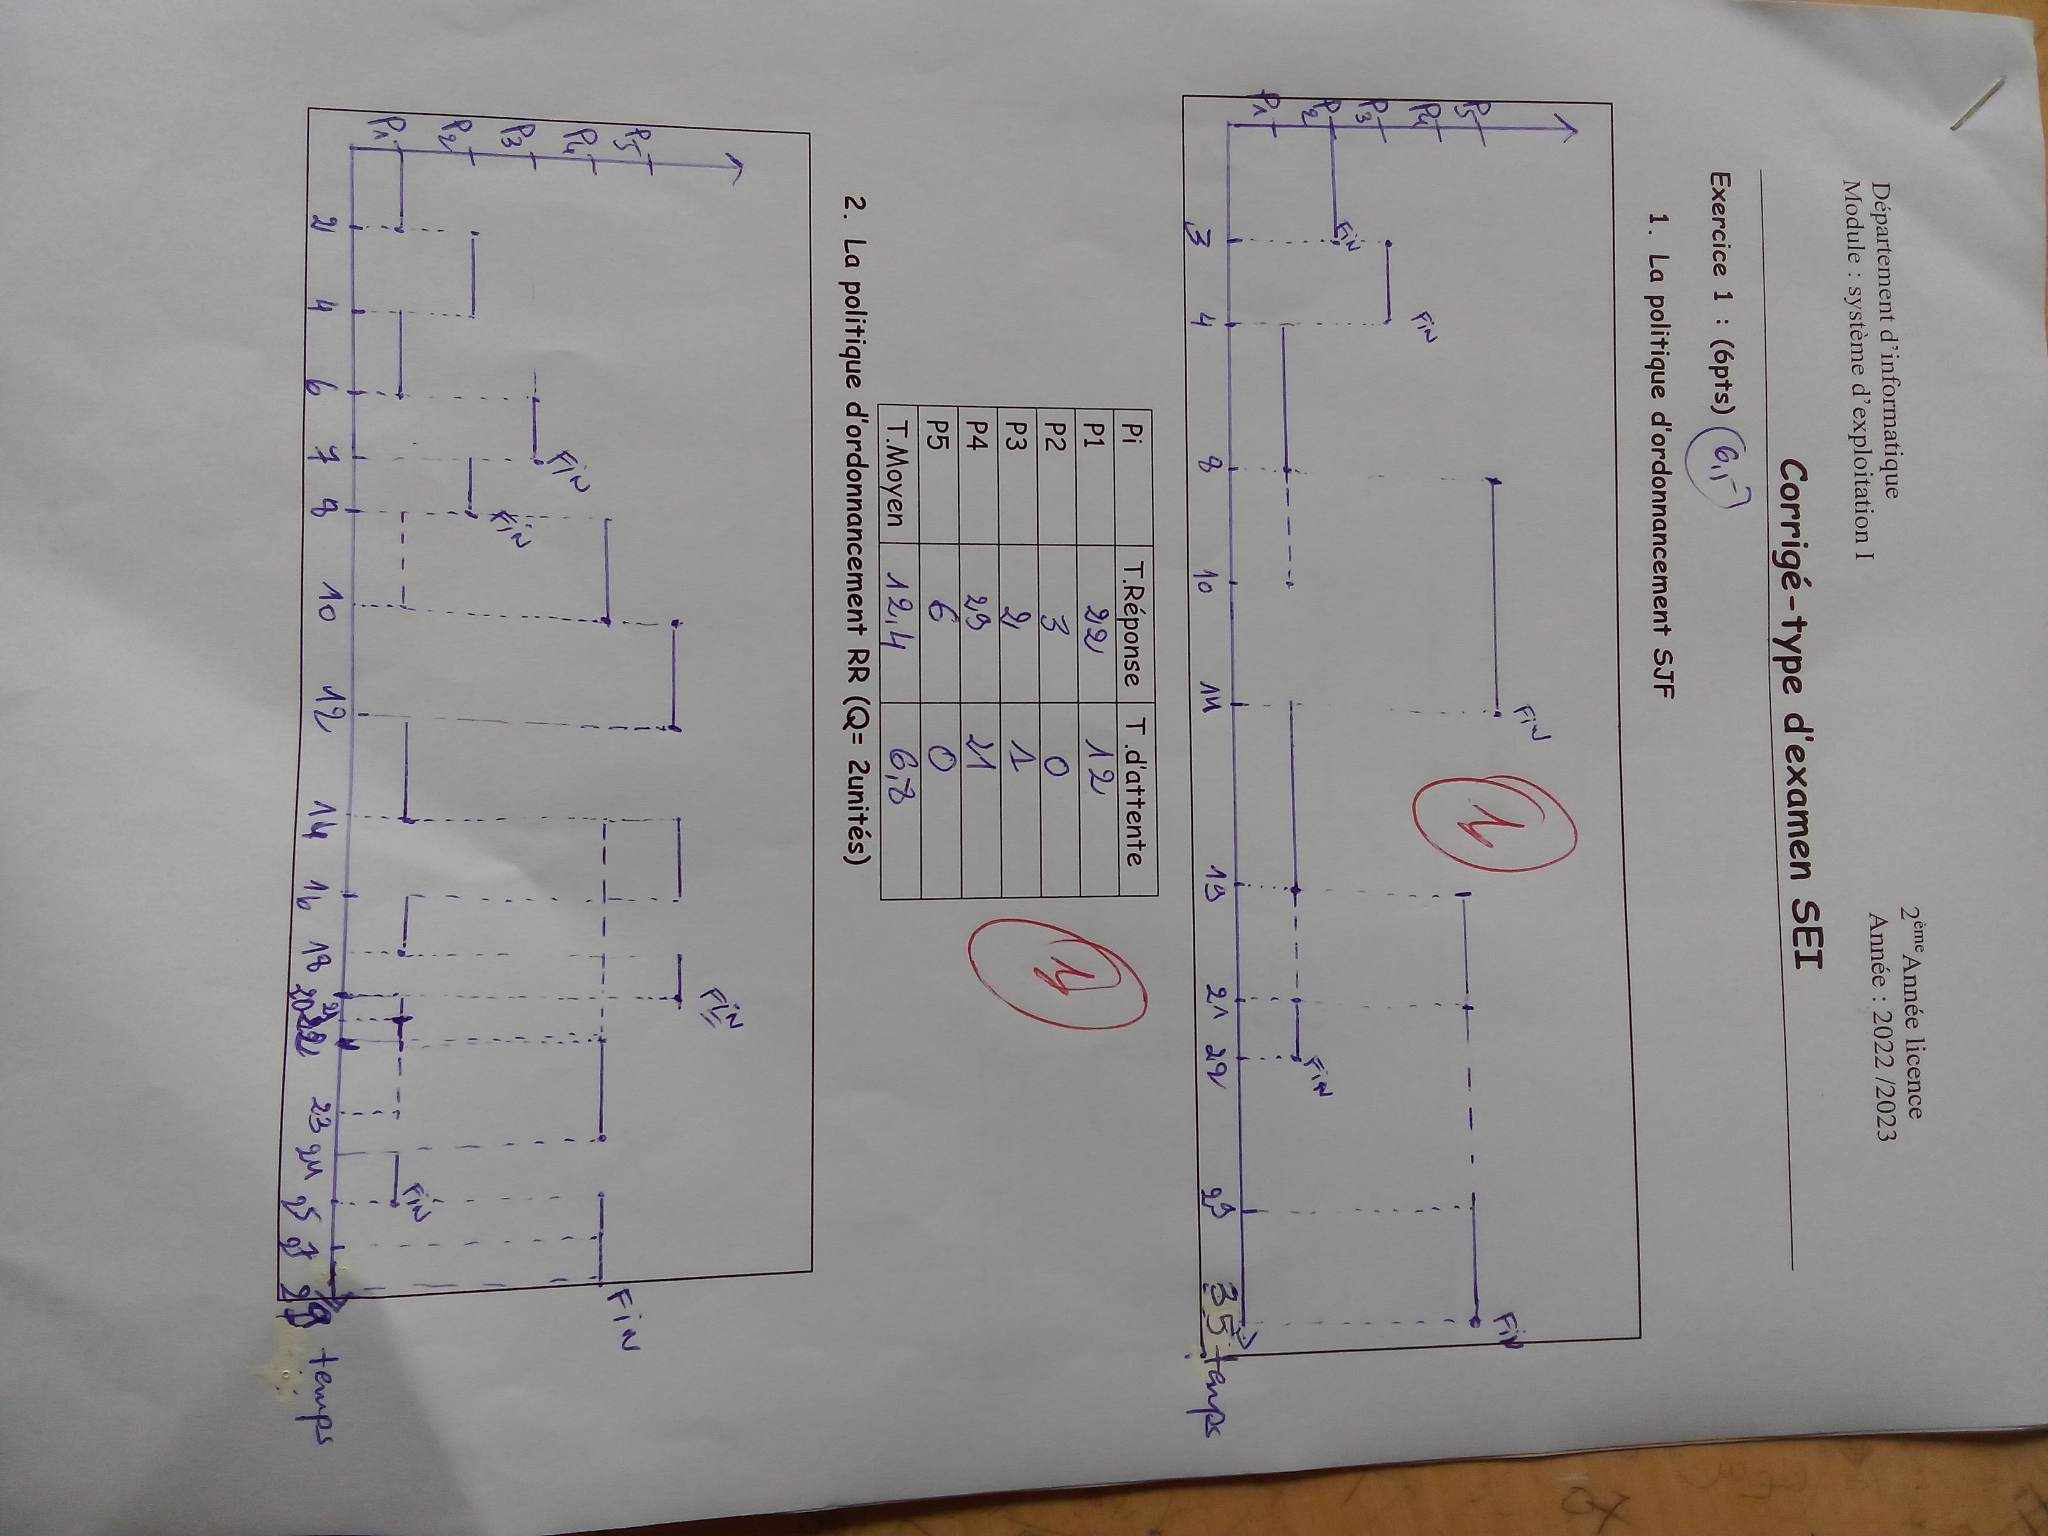 Département d'informatique
2ème Année licence
Module : système d'exploitation I
Année : 2022 /2023
Corrigé-type d'examen SEI
Exercice 1 : (6pts)
1. La politique d'ordonnancement SJF
P5
P4
P3
P2
P1
Fin
Fin
Fin
Fin
Fin
3 4 8 10 14 19 21 22 29 35 temps
1
Pi T.Réponse T.d'attente
P1 22 12
P2 3 0
P3 2 1
P4 29 21
P5 6 0
T.Moyen 12,4 6,8
1
2. La politique d'ordonnancement RR (Q= 2unités)
P5
P4
P3
P2
P1
Fin
Fin
Fin
Fin
Fin
2 4 6 7 8 10 12 14 16 18 20 21 22 23 24 25 27 temps